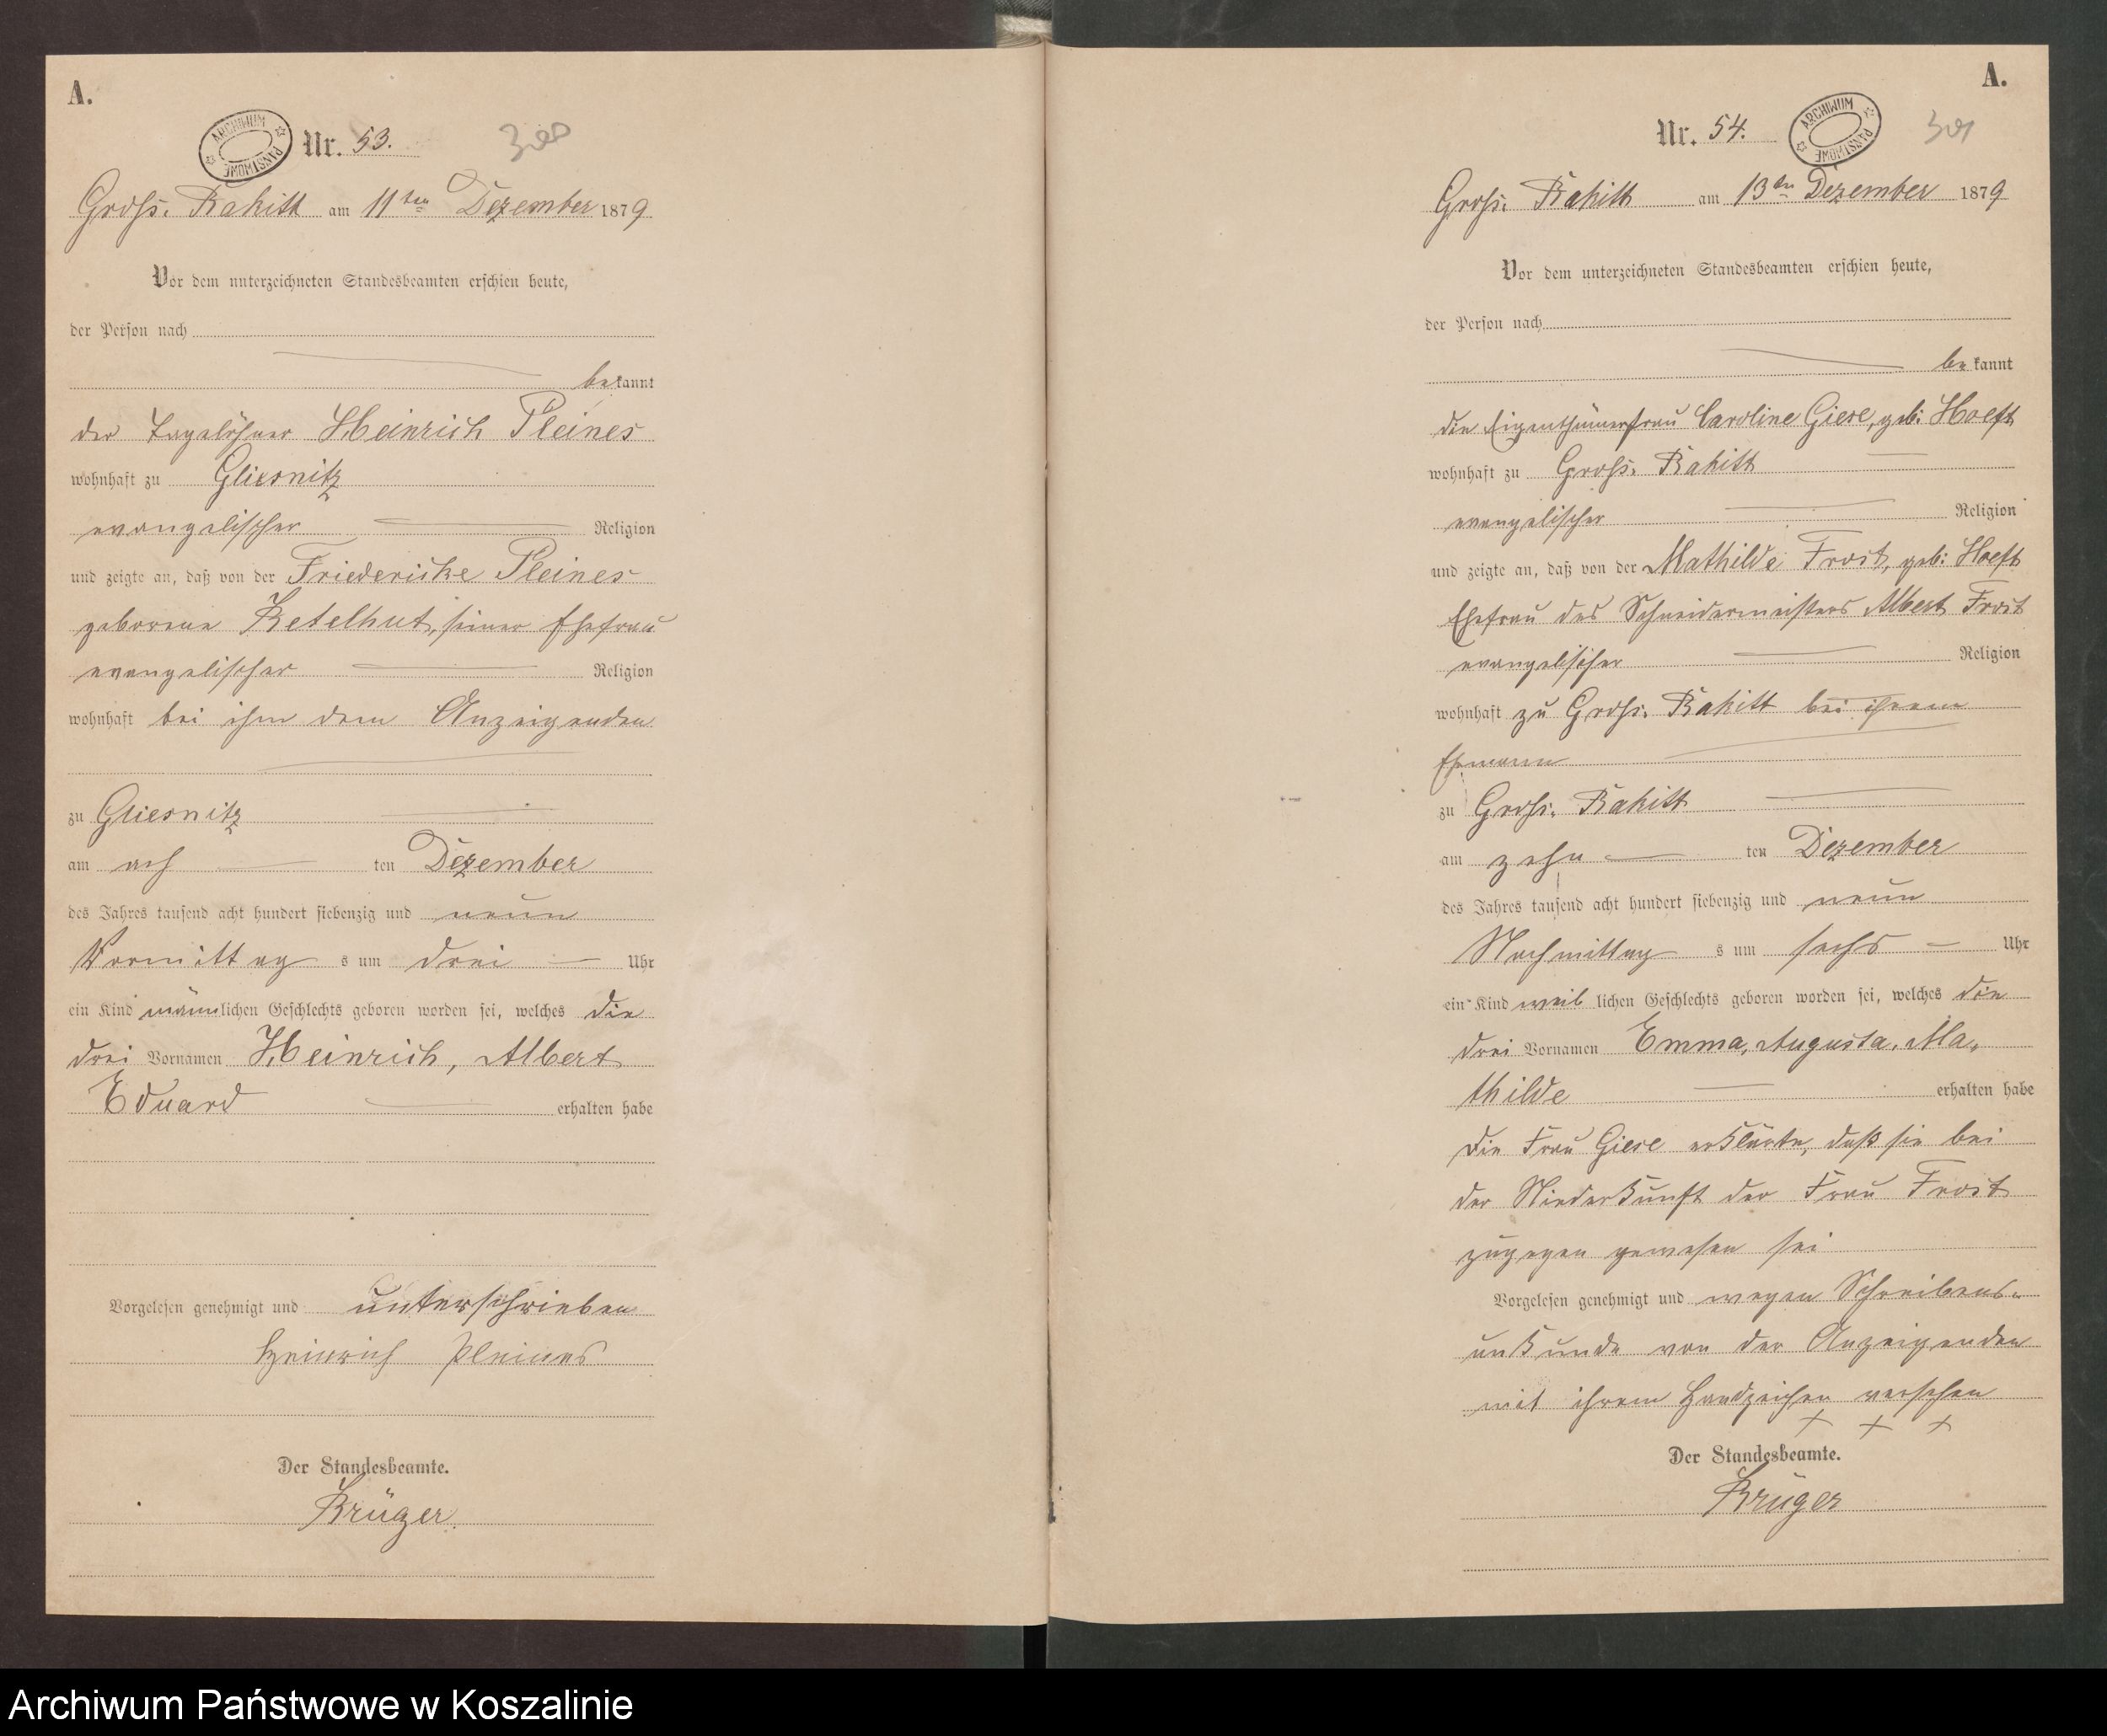 A.
ARCHIWUM PAŃSTWOWE
Nr. 53.
300
Gross. Rakitt am 11ten Dezember 1879
Vor dem unterzeichneten Standesbeamten erschien heute,
der Person nach
bekannt
der Tagelöhner Heinrich Pleines
wohnhaft zu Gliesnitz
evangelischer Religion
und zeigte an, daß von der Friedericke Pleines
geborene Ketelhut, seiner Ehefrau
evangelischer Religion
wohnhaft bei ihm dem Anzeigenden
zu Gliesnitz
am ach ten Dezember
des Jahres tausend acht hundert siebenzig und neun
Vormittag s um drei Uhr
ein Kind männlichen Geschlechts geboren worden sei, welches die
drei Vornamen Heinrich, Albert
Eduard erhalten habe
Vorgelesen genehmigt und unterschrieben
Heinrich Pleines
Der Standesbeamte.
Krüger.
A.
Nr. 54.
ARCHIWUM PAŃSTWOWE
301
Gross. Rakitt am 13ten Dezember 1879
Vor dem unterzeichneten Standesbeamten erschien heute,
der Person nach
bekannt
die Eigenthümerfrau Caroline Giese, geb: Hoeft
wohnhaft zu Gross. Rakitt
evangelischer Religion
und zeigte an, daß von der Mathilde Frost, geb: Hoeft
Ehefrau des Schneidermeisters Albert Frost
evangelischer Religion
wohnhaft zu Gross. Rakitt bei ihrem
Ehemann
zu Gross. Rakitt
am zehn ten Dezember
des Jahres tausend acht hundert siebenzig und neun
Nachmittag s um sechs Uhr
ein Kind weiblichen Geschlechts geboren worden sei, welches die
drei Vornamen Emma, Augusta, Ma-
thilde erhalten habe
Die Frau Giese erklärte, daß sie bei
der Niederkunft der Frau Frost
zugegen gewesen sei
Vorgelesen genehmigt und wegen Schreibens-
unkunde von der Anzeigenden
mit ihrem Handzeichen versehen
+ + +
Der Standesbeamte.
Krüger
Archiwum Państwowe w Koszalinie